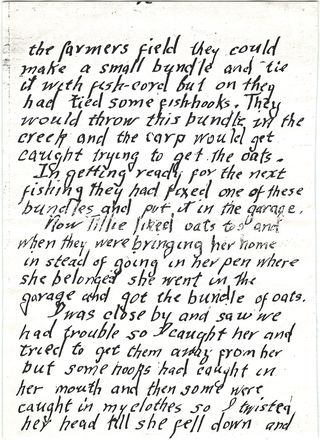 the farmers field they could
make a small bundle and tie
it with fish-cord but on they
had tied some fishhooks. They
would throw this bundle in the
creek and the carp would get
caught trying to get the oats.
In getting ready for the next
fishing they had fixed one of these
bundles and put it in the garage.
Now Tillie liked oats too and
when they were bringing her home
in stead of going in her pen where
she belonged she went in the
garage and got the bundle of oats.
I was close by and saw we
had trouble so I caught her and
tried to get them away from her
but some hooks had caught in
her mouth and then some were
caught in my clothes so I twisted
her head till she fell down and